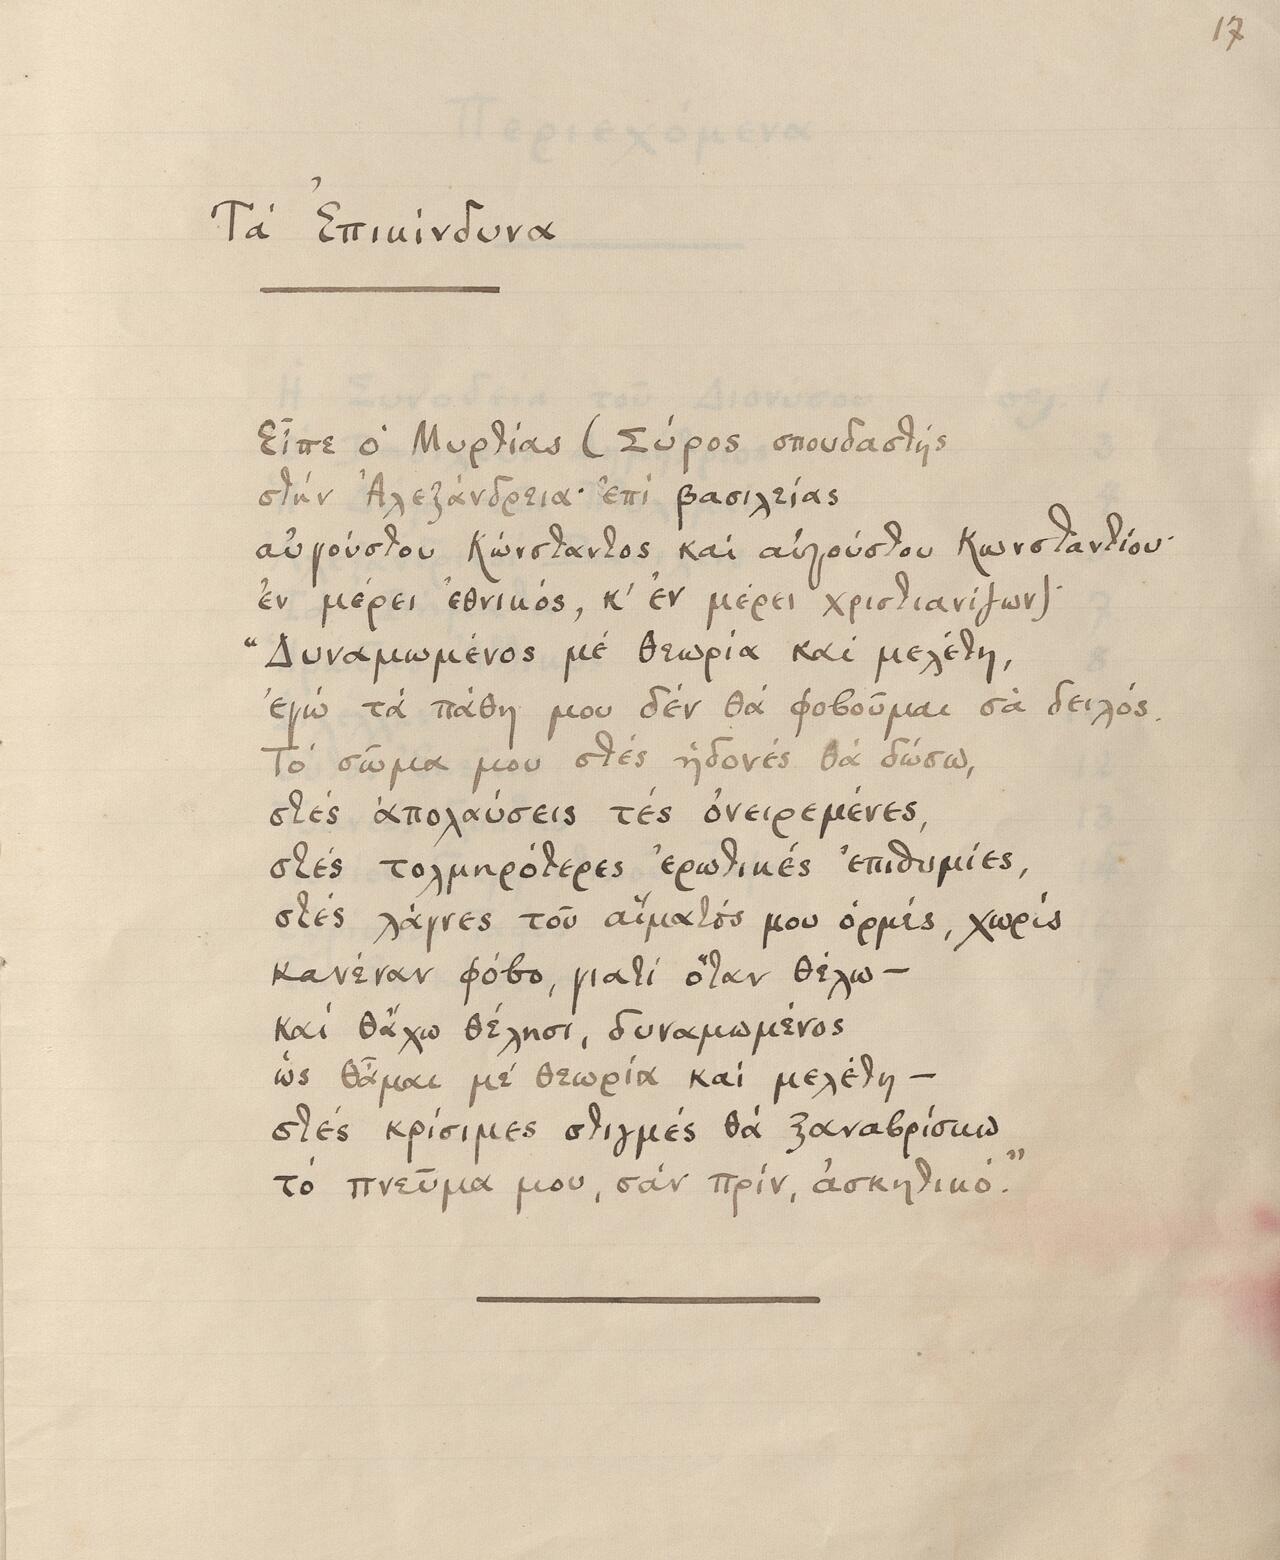 17
Περιεχόμενα
Τά Ἐπικίνδυνα
Ἡ Συνοδεία τοῦ Διονύσου σελ. 1
Εἶπε ὁ Μυρτίας (Σύρος σπουδαστής
στήν Ἀλεξάνδρεια· ἐπί βασιλείας
αὐγούστου Κώνσταντος καί αὐγούστου Κωνσταντίου·
ἐν μέρει ἐθνικός, κ' ἐν μέρει χριστιανίζων)·
“Δυναμωμένος μέ θεωρία καί μελέτη,
ἐγώ τά πάθη μου δέν θά φοβοῦμαι σά δειλός.
Τό σῶμα μου στές ἡδονές θά δώσω,
στές ἀπολαύσεις τές ὀνειρεμένες,
στές τολμηρότερες ἐρωτικές ἐπιθυμίες,
στές λάγνες τοῦ αἵματός μου ὁρμές, χωρίς
κανέναν φόβο, γιατί ὅταν θέλω —
καί θἄχω θέλησι, δυναμωμένος
ὡς θἆμαι μέ θεωρία καί μελέτη —
στές κρίσιμες στιγμές θά ξαναβρίσκω
τό πνεῦμα μου, σάν πρίν, ἀσκητικό.”